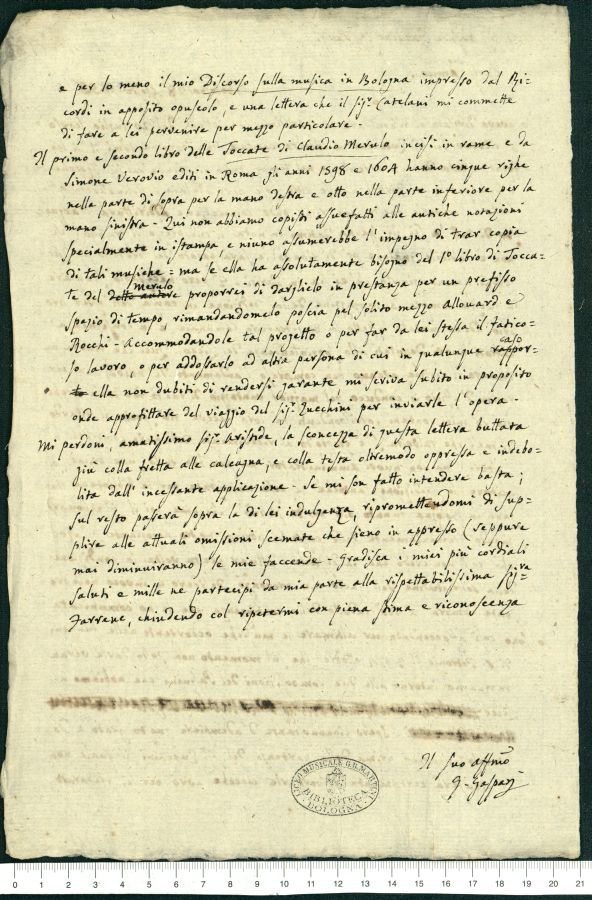 e per lo meno il mio Discorso sulla musica in Bologna impresso dal Ri-
cordi in apposito opuscolo, e una lettera che il sig.r Catelani mi commette
di fare a lei pervenire per mezzo particolare.
Il primo e secondo libro delle Toccate di Claudio Merulo incisi in rame e da
Simone Verovio editi in Roma gli anni 1598 e 1604 hanno cinque righe
nella parte di sopra per la mano destra e otto nella parte inferiore per la
mano sinistra. Qui non abbiamo copisti assuefatti alle antiche notazioni
specialmente in istampa, e niuno assumerebbe l'impegno di trar copia
di tali musiche = ma se ella ha assolutamente bisogno del 1.o libro di Tocca-
te del detto autore Merulo proporrei di darglielo in prestanza per un prefisso
spazio di tempo, rimandandomelo poscia pel solito mezzo Allouard e
Rocchi. Accommodandole tal progetto o per far da lei stessa il fatico-
so lavoro, o per addossarlo ad altra persona di cui in qualunque rappor- caso
to ella non dubiti di rendersi garante, mi scriva subito in proposito
onde approfittare del viaggio del sig.r Zucchini per inviarle l'opera.
Mi perdoni, amatissimo sig.r Aristide, la sconcezza di questa lettera buttata
giù colla fretta alle calcagna, e colla testa oltremodo oppressa e indebo-
lita dall'incessante applicazione. Se mi son fatto intendere basta;
sul resto passerà sopra la di lei indulgenza, ripromettendomi di sup-
plire alle attuali omissioni scemate che sieno in appresso (seppure
mai diminuiranno) le mie faccende. Gradisca i miei più cordiali
saluti e mille ne partecipi da mia parte alla rispettabilissima sig.ra
Farrenc, chiudendo col ripetermi con piena stima e riconoscenza
Il suo affmo
G. Gaspari
LICEO MUSICALE G.B. MARTINI
BIBLIOTECA
BOLOGNA
0 1 2 3 4 5 6 7 8 9 10 11 12 13 14 15 16 17 18 19 20 21